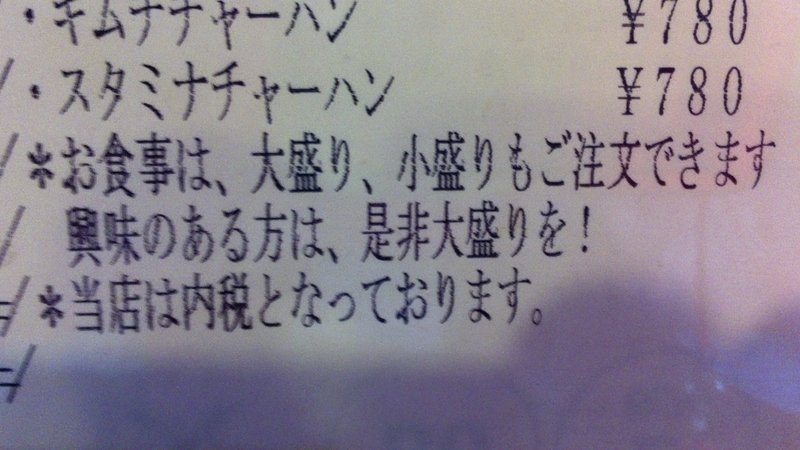 ・キムチチャーハン ¥780
・スタミナチャーハン ¥780
*お食事は、大盛り、小盛りもご注文できます
興味のある方は、是非大盛りを!
*当店は内税となっております。